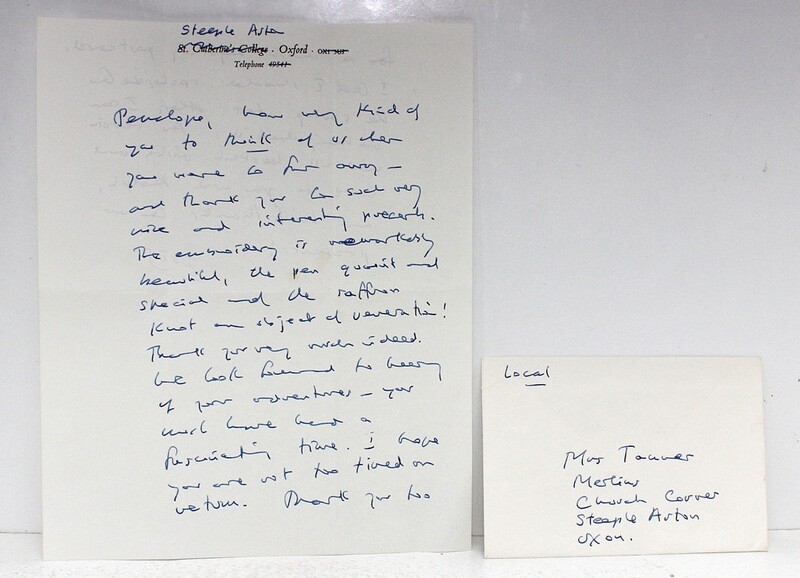 Steeple Aston
St. Catherine's College · Oxford · OX1 3UJ
Telephone 49541
Penelope, how very kind of
you to think of us when
you were so far away –
and thank you for such very
nice and interesting presents.
The embroidery is remarkably
beautiful, the pen quaint and
special and the saffron
knot an object of veneration!
Thank you very much indeed.
We look forward to hearing
of your adventures – you
must have had a
fascinating time. I hope
you are not too tired on
return. Thank you too
Local
Mrs Tanner
Merlins
Church Corner
Steeple Aston
Oxon.